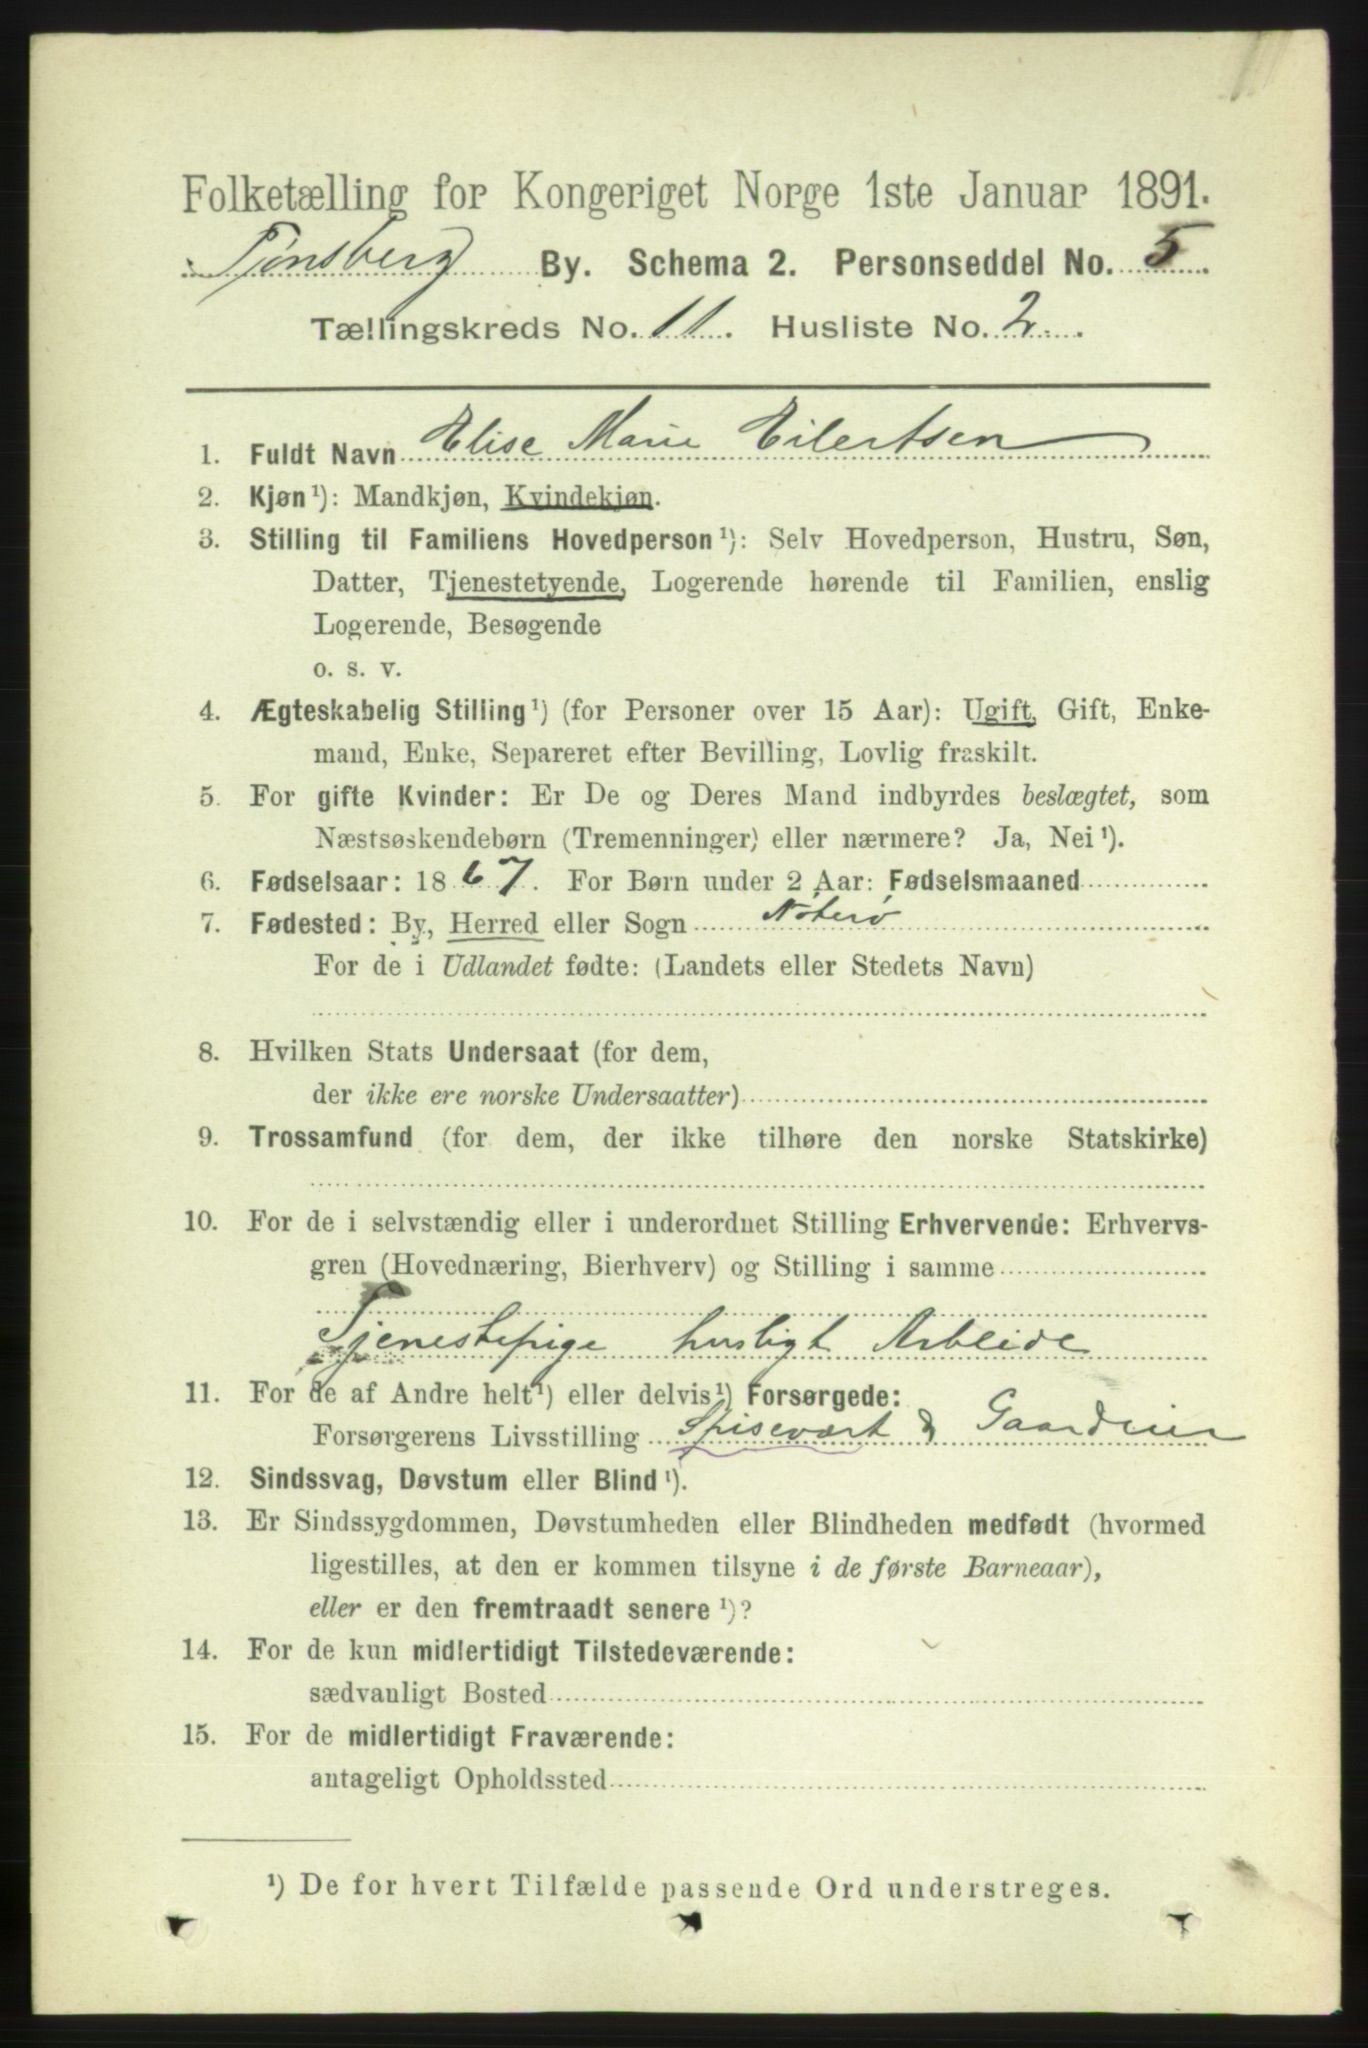 Folketælling for Kongeriget Norge 1ste Januar 1891.
Tønsberg By. Schema 2. Personseddel No. 5
Tællingskreds No. 11. Husliste No. 2.
1. Fuldt Navn Elise Marie Eilertsen
2. Kjøn¹): Mandkjøn, Kvindekjøn.
3. Stilling til Familiens Hovedperson¹): Selv Hovedperson, Hustru, Søn,
Datter, Tjenestetyende, Logerende hørende til Familien, enslig
Logerende, Besøgende
o. s. v.
4. Ægteskabelig Stilling¹) (for Personer over 15 Aar): Ugift, Gift, Enke-
mand, Enke, Separeret efter Bevilling, Lovlig fraskilt.
5. For gifte Kvinder: Er De og Deres Mand indbyrdes beslægtet, som
Næstsøskendebørn (Tremenninger) eller nærmere? Ja, Nei¹).
6. Fødselsaar: 1867. For Børn under 2 Aar: Fødselsmaaned
7. Fødested: By, Herred eller Sogn Nøterø
For de i Udlandet fødte: (Landets eller Stedets Navn)
8. Hvilken Stats Undersaat (for dem,
der ikke ere norske Undersaatter)
9. Trossamfund (for dem, der ikke tilhøre den norske Statskirke)
10. For de i selvstændig eller i underordnet Stilling Erhvervende: Erhvervs-
gren (Hovednæring, Bierhverv) og Stilling i samme
Tjenestepige husligt Arbeide
11. For de af Andre helt¹) eller delvis¹) Forsørgede:
Forsørgerens Livsstilling Spisevært & Gaardeier
12. Sindssvag, Døvstum eller Blind¹).
13. Er Sindssygdommen, Døvstumheden eller Blindheden medfødt (hvormed
ligestilles, at den er kommen tilsyne i de første Barneaar),
eller er den fremtraadt senere¹)?
14. For de kun midlertidigt Tilstedeværende:
sædvanligt Bosted
15. For de midlertidigt Fraværende:
antageligt Opholdssted
¹) De for hvert Tilfælde passende Ord understreges.